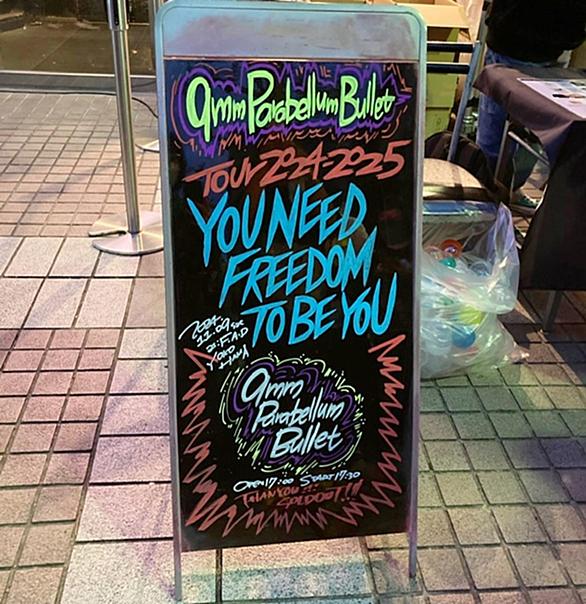 9mm Parabellum Bullet
TOUR 2024-2025
YOU NEED
FREEDOM
TO BE YOU
2024.
11.09 SAT
at: F.A.D
YOKO
HAMA
9mm
Parabellum
Bullet
OPEN 17:00 START 17:30
THANK YOU!!!
SOLDOUT!!!